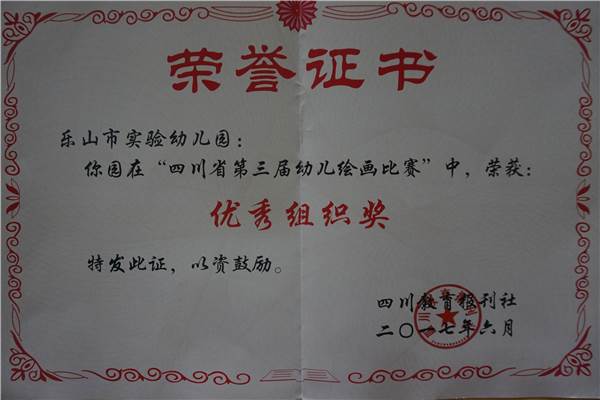 荣誉证书
乐山市实验幼儿园：
你园在“四川省第三届幼儿绘画比赛”中，荣获：
优秀组织奖
特发此证，以资鼓励。
四川教育报刊社
二〇一七年六月